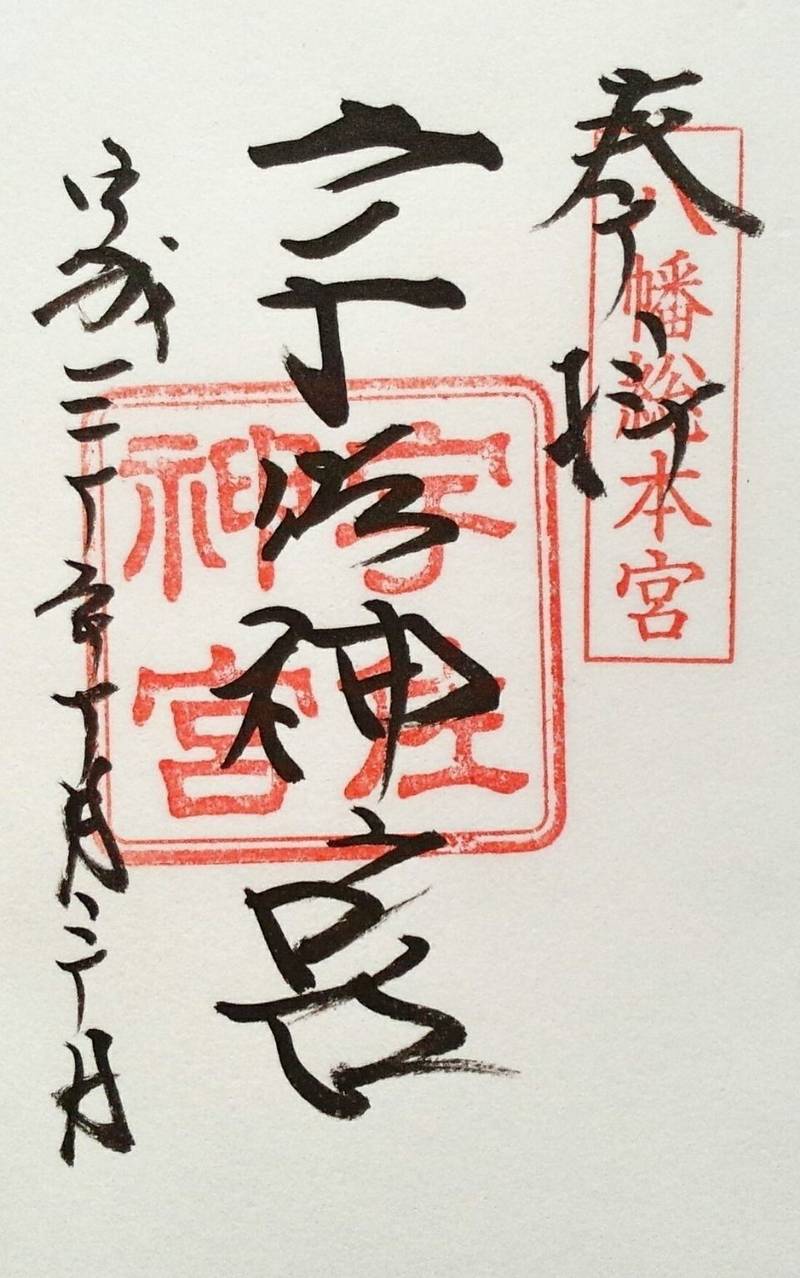 奉拝
八幡総本宮
宇佐神宮
宇佐
神宮
平成三十年十月